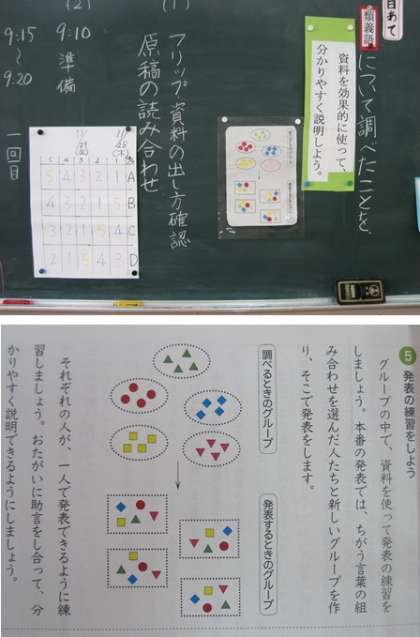 日あて
類義語
について調べたことを、
資料を効果的に使って、
分かりやすく説明しよう。
(1)
フリップ資料の出し方確認
原稿の読み合わせ
(2)
9:10 準備
9:15
〜
9:20
一回目
A
B
C
D
5 4 3 2 1
5 4 3 2 1
4 3 2 1 5
3 2 1 5 4
2 1 5 4 3
5 発表の練習をしよう
グループの中で、資料を使って発表の練習を
しましょう。本番の発表では、ちがう言葉の組
み合わせを選んだ人たちと新しいグループを作
り、そこで発表をします。
調べるときのグループ
発表するときのグループ
それぞれの人が、一人で発表できるように練
習しましょう。おたがいに助言をし合って、分
かりやすく説明できるようにしましょう。